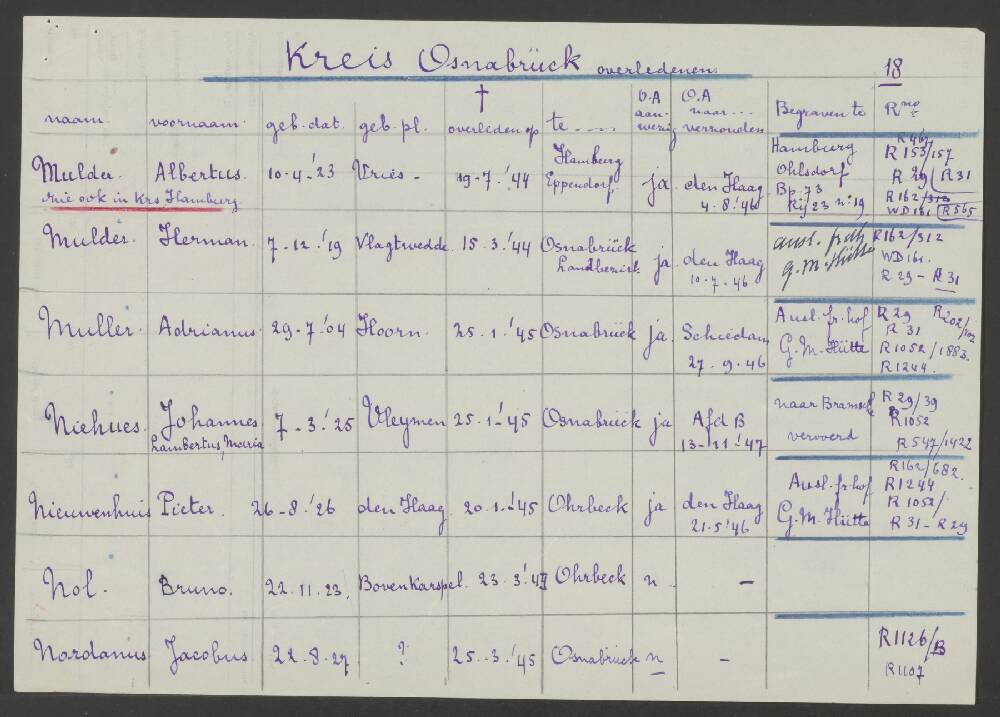 Kreis Osnabrück overledenen. 18
naam. voornaam. geb. dat. geb. pl. † overleden op te .... O.A aanwezig O.A naar ... verzonden Begraven te R no
Mulder. Albertus. 10-4-'23 Vries - 19-7-'44 Hamburg Eppendorf. ja den Haag 4.8.'46 Hamburg Ohlsdorf Bp. 73 Rij 23 no 19
zie ook in Krs Hamburg.
R 153/157
R 29 R 31
R 162/312
WD 161 R 565
Mulder. Herman. 7-12-'19 Vlagtwedde. 15.3.'44 Osnabrück Landbezirk ja den Haag 10-7-46 ausl. frdh g.M.Hütte R 162/312
WD 161.
R 29 - R 31
Muller. Adrianus. 29-7-'04 Hoorn. 25.1.'45 Osnabrück ja. Schiedam 27.9.46 Ausl. fr. hof G.M.Hütte R 29
R 31
R 1052/1883.
R 1244.
Niehues. Johannes Lambertus, Maria 7-3-'25 Vleymen 25.1-'45 Osnabrück ja Afd B 13-11-'47 naar Bramsche vervoerd R 29/39
R 1052
R 547/1422
Nieuwenhuis Pieter. 26-8-'26 den Haag. 20.1-'45 Ohrbeck ja den Haag 21.5'46 Ausl. fr hof G.M.Hütte R 162/682.
R 1244
R 1052/
R 31 - R 29
Nol. Bruno. 22.11.23. Bovenkarspel. 23.3.' Ohrbeck n. -
Nordanus. Jacobus 22-8-27 ? 25.-3.'45 Osnabrück n - R 1126/B
R 1107